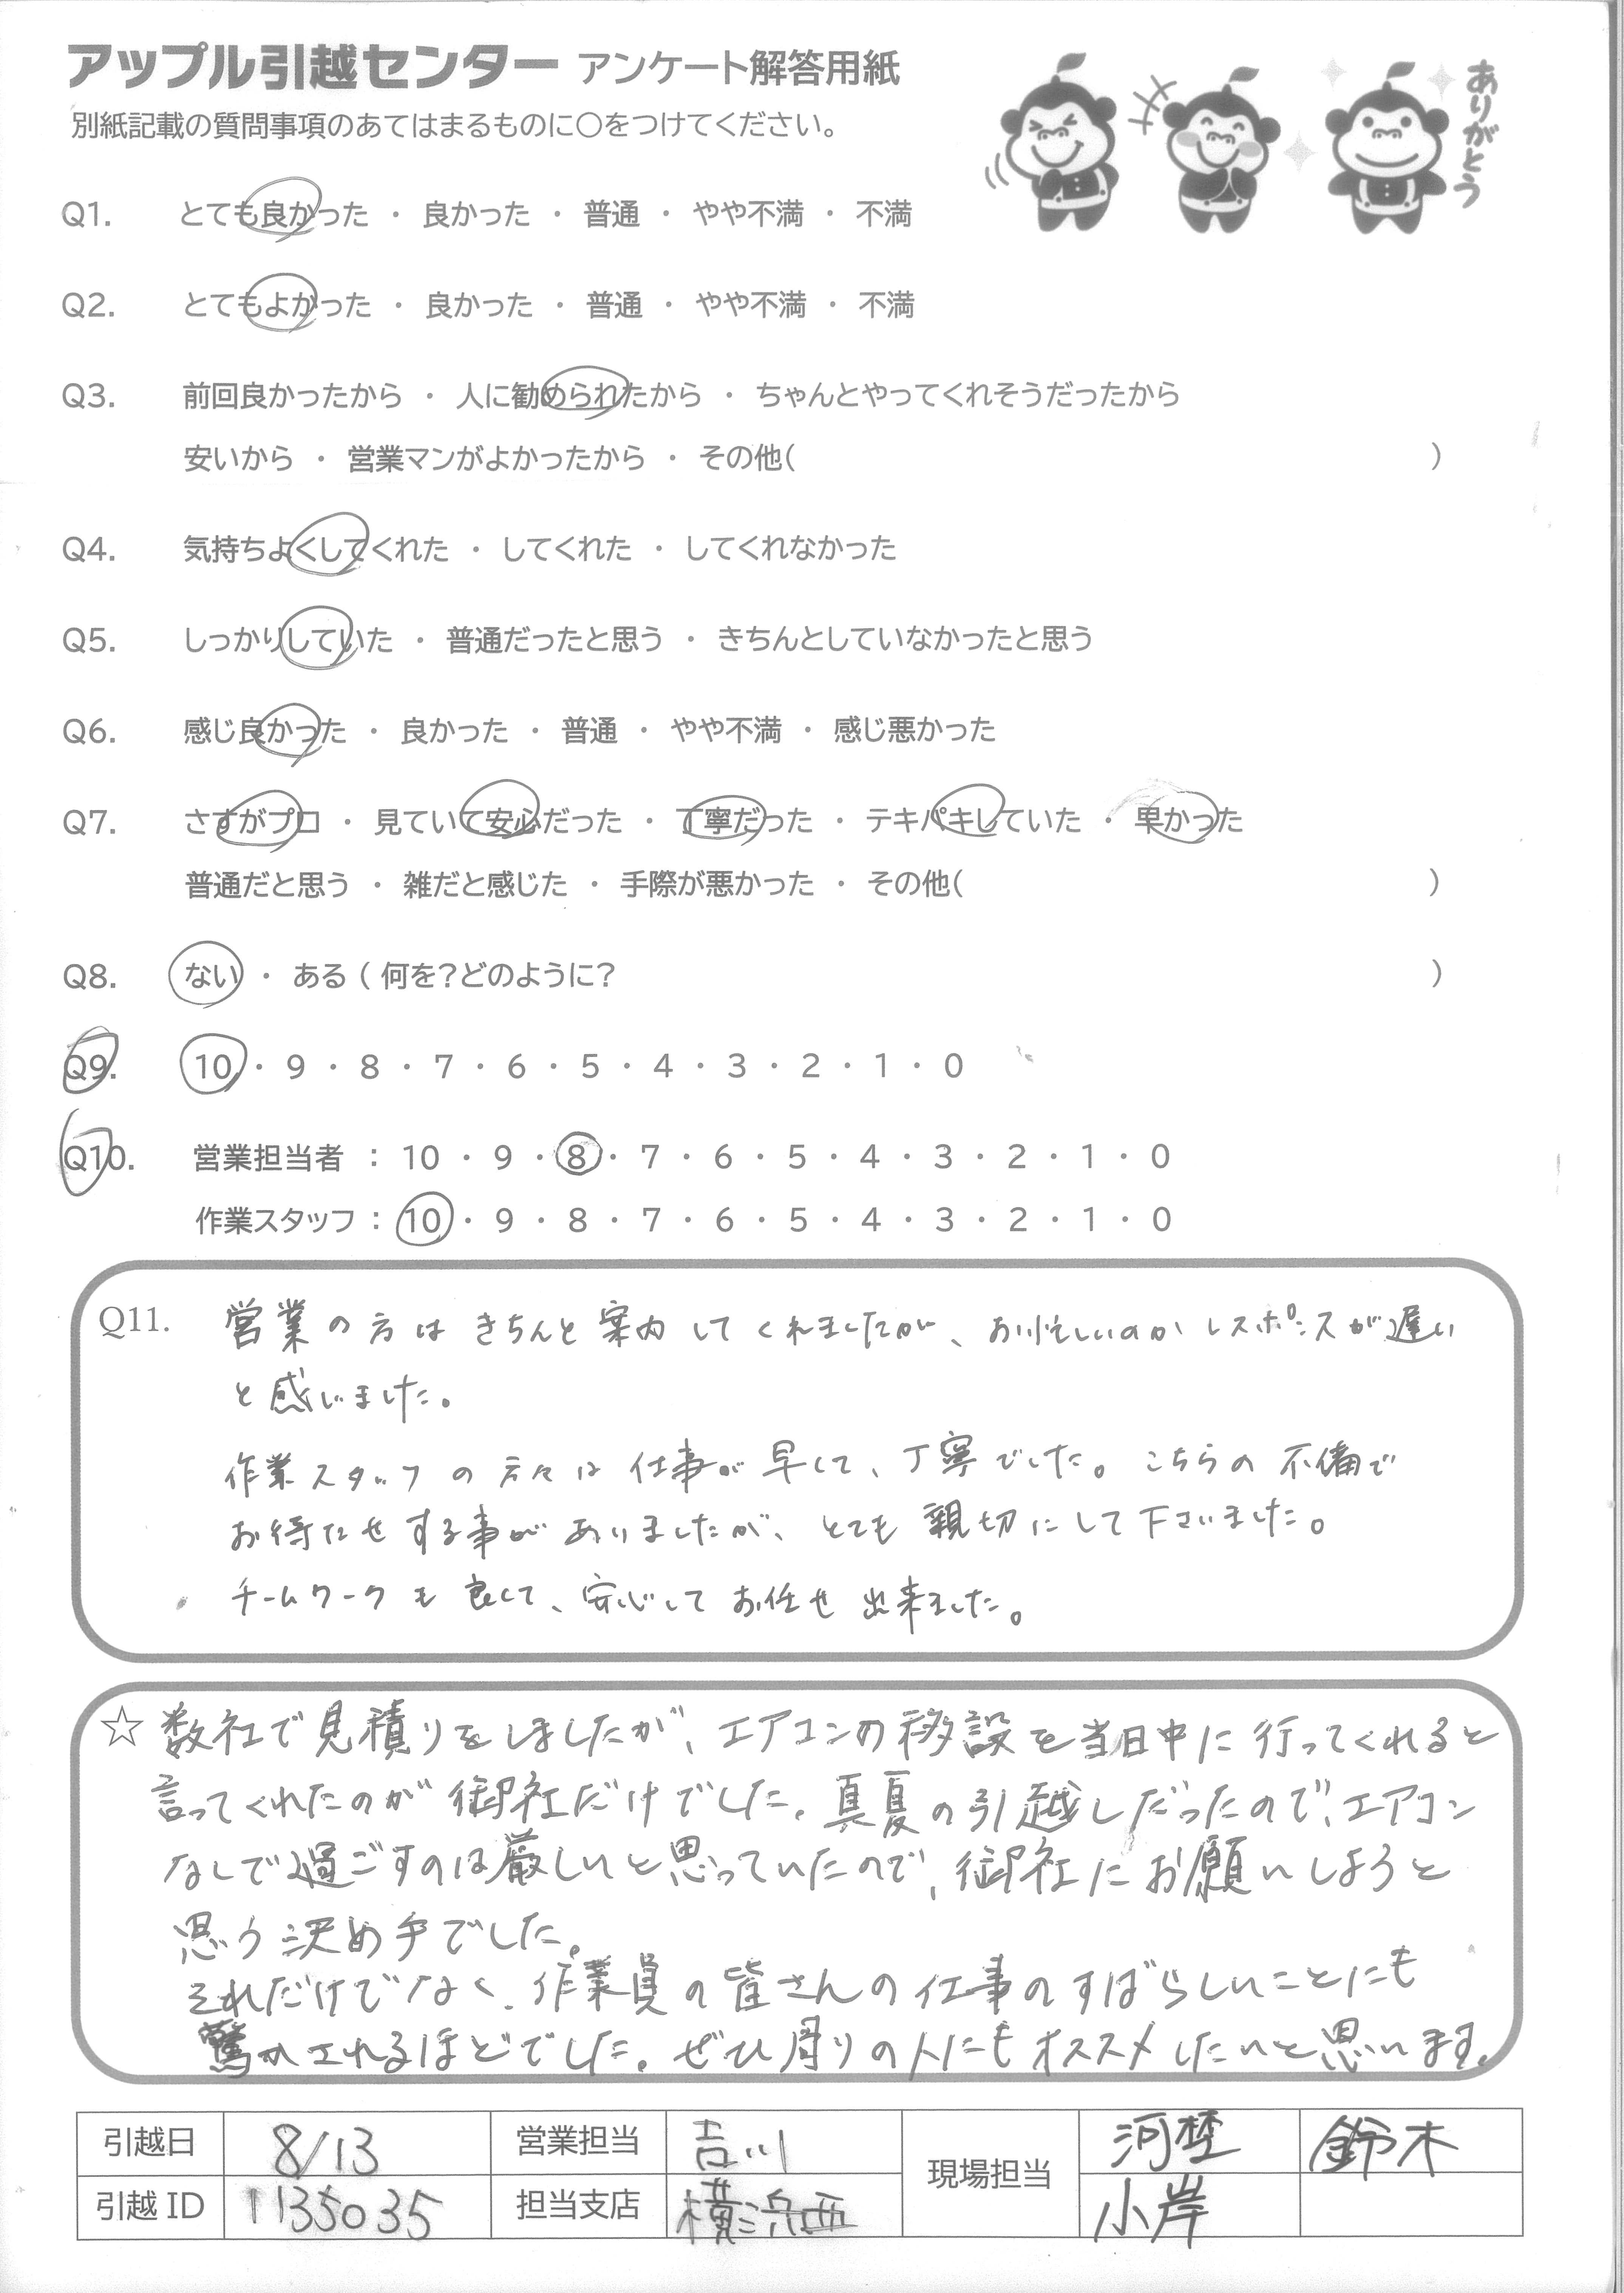 アップル引越センター アンケート解答用紙
別紙記載の質問事項のあてはまるものに○をつけてください。
ありがとう
Q1. とても良かった ・ 良かった ・ 普通 ・ やや不満 ・ 不満
Q2. とてもよかった ・ 良かった ・ 普通 ・ やや不満 ・ 不満
Q3. 前回良かったから ・ 人に勧められたから ・ ちゃんとやってくれそうだったから
安いから ・ 営業マンがよかったから ・ その他( )
Q4. 気持ちよくしてくれた ・ してくれた ・ してくれなかった
Q5. しっかりしていた ・ 普通だったと思う ・ きちんとしていなかったと思う
Q6. 感じ良かった ・ 良かった ・ 普通 ・ やや不満 ・ 感じ悪かった
Q7. さすがプロ ・ 見ていて安心だった ・ 丁寧だった ・ テキパキしていた ・ 早かった
普通だと思う ・ 雑だと感じた ・ 手際が悪かった ・ その他( )
Q8. ない ・ ある ( 何を?どのように? )
Q9. 10 ・ 9 ・ 8 ・ 7 ・ 6 ・ 5 ・ 4 ・ 3 ・ 2 ・ 1 ・ 0
Q10. 営業担当者 : 10 ・ 9 ・ 8 ・ 7 ・ 6 ・ 5 ・ 4 ・ 3 ・ 2 ・ 1 ・ 0
作業スタッフ : 10 ・ 9 ・ 8 ・ 7 ・ 6 ・ 5 ・ 4 ・ 3 ・ 2 ・ 1 ・ 0
Q11. 営業の方はきちんと案内してくれましたが、お忙しいのかレスポンスが遅い
と感じました。
作業スタッフの方々は仕事が早くて、丁寧でした。こちらの不備で
お待たせする事がありましたが、とても親切にして下さいました。
チームワークも良くて、安心してお任せ出来ました。
☆ 数社で見積りをしましたが、エアコンの移設を当日中に行ってくれると
言ってくれたのが御社だけでした。真夏の引越しだったので、エアコン
なしで過ごすのは厳しいと思っていたので、御社にお願いしようと
思う決め手でした。
それだけでなく、作業員の皆さんの仕事のすばらしいことにも
驚かされるほどでした。ぜひ周りの人にもオススメしたいと思います。
引越日 8/13 営業担当 吉川 現場担当 河埜 鈴木
引越ID 1135035 担当支店 横浜西 小岸